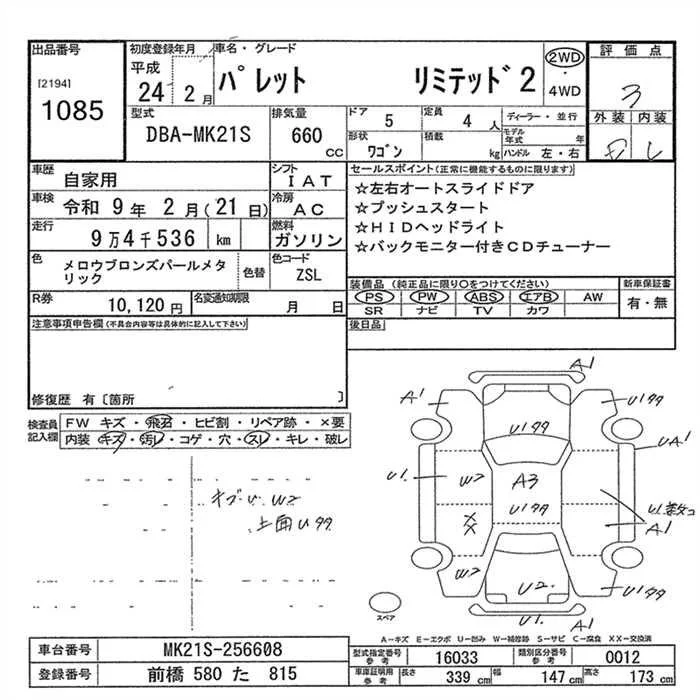 出品番号
[2194]
1085
初度登録年月
平成
24 2 月
車名・グレード
パレット リミテッド2
2WD
・
4WD
評価点
3
外装 内装
型式
DBA-MK21S
排気量
660
CC
ドア 5
定員 4 人
形状 ワゴン
積載 kg
ディーラー・並行
モデル年式 年
ハンドル 左・右
車歴 自家用
シフト IAT
車検 令和 9 年 2 月(21 日)
冷房 AC
走行 9万4千536 km
燃料 ガソリン
色 メロウブロンズパールメタリック
色替
色コード ZSL
R券 10,120 円
名変通知期限 月 日
セールスポイント(正常に機能するものに限ります)
☆左右オートスライドドア
☆プッシュスタート
☆HIDヘッドライト
☆バックモニター付きCDチューナー
装備品 (純正品に限り○をつけてください)
新車保証書
PS PW ABS エアB AW
SR ナビ TV カワ
有・無
後日品
注意事項申告欄(不具合内容等は具体的に記入して下さい)
修復歴 有〔箇所 〕
検査員記入欄
FW キズ・飛石・ヒビ割・リペア跡・×要
内装・キズ・汚レ・コゲ・穴・スレ・キレ・破レ
W2
上面U
A1
A1
U1
U1
U1
UA1
U1
W2
A3
U1
XX
U1
A1
W2
U2
U1
U1
A1
スペア
A−キズ E−エクボ U−凹み W−補修跡 S−サビ C−腐食 XX−交換済
車台番号 MK21S-256608
登録番号 前橋 580 た 815
型式指定番号 参考 16033
類別区分番号 参考 0012
車庫証明用 参考 長さ 339 cm 幅 147 cm 高さ 173 cm